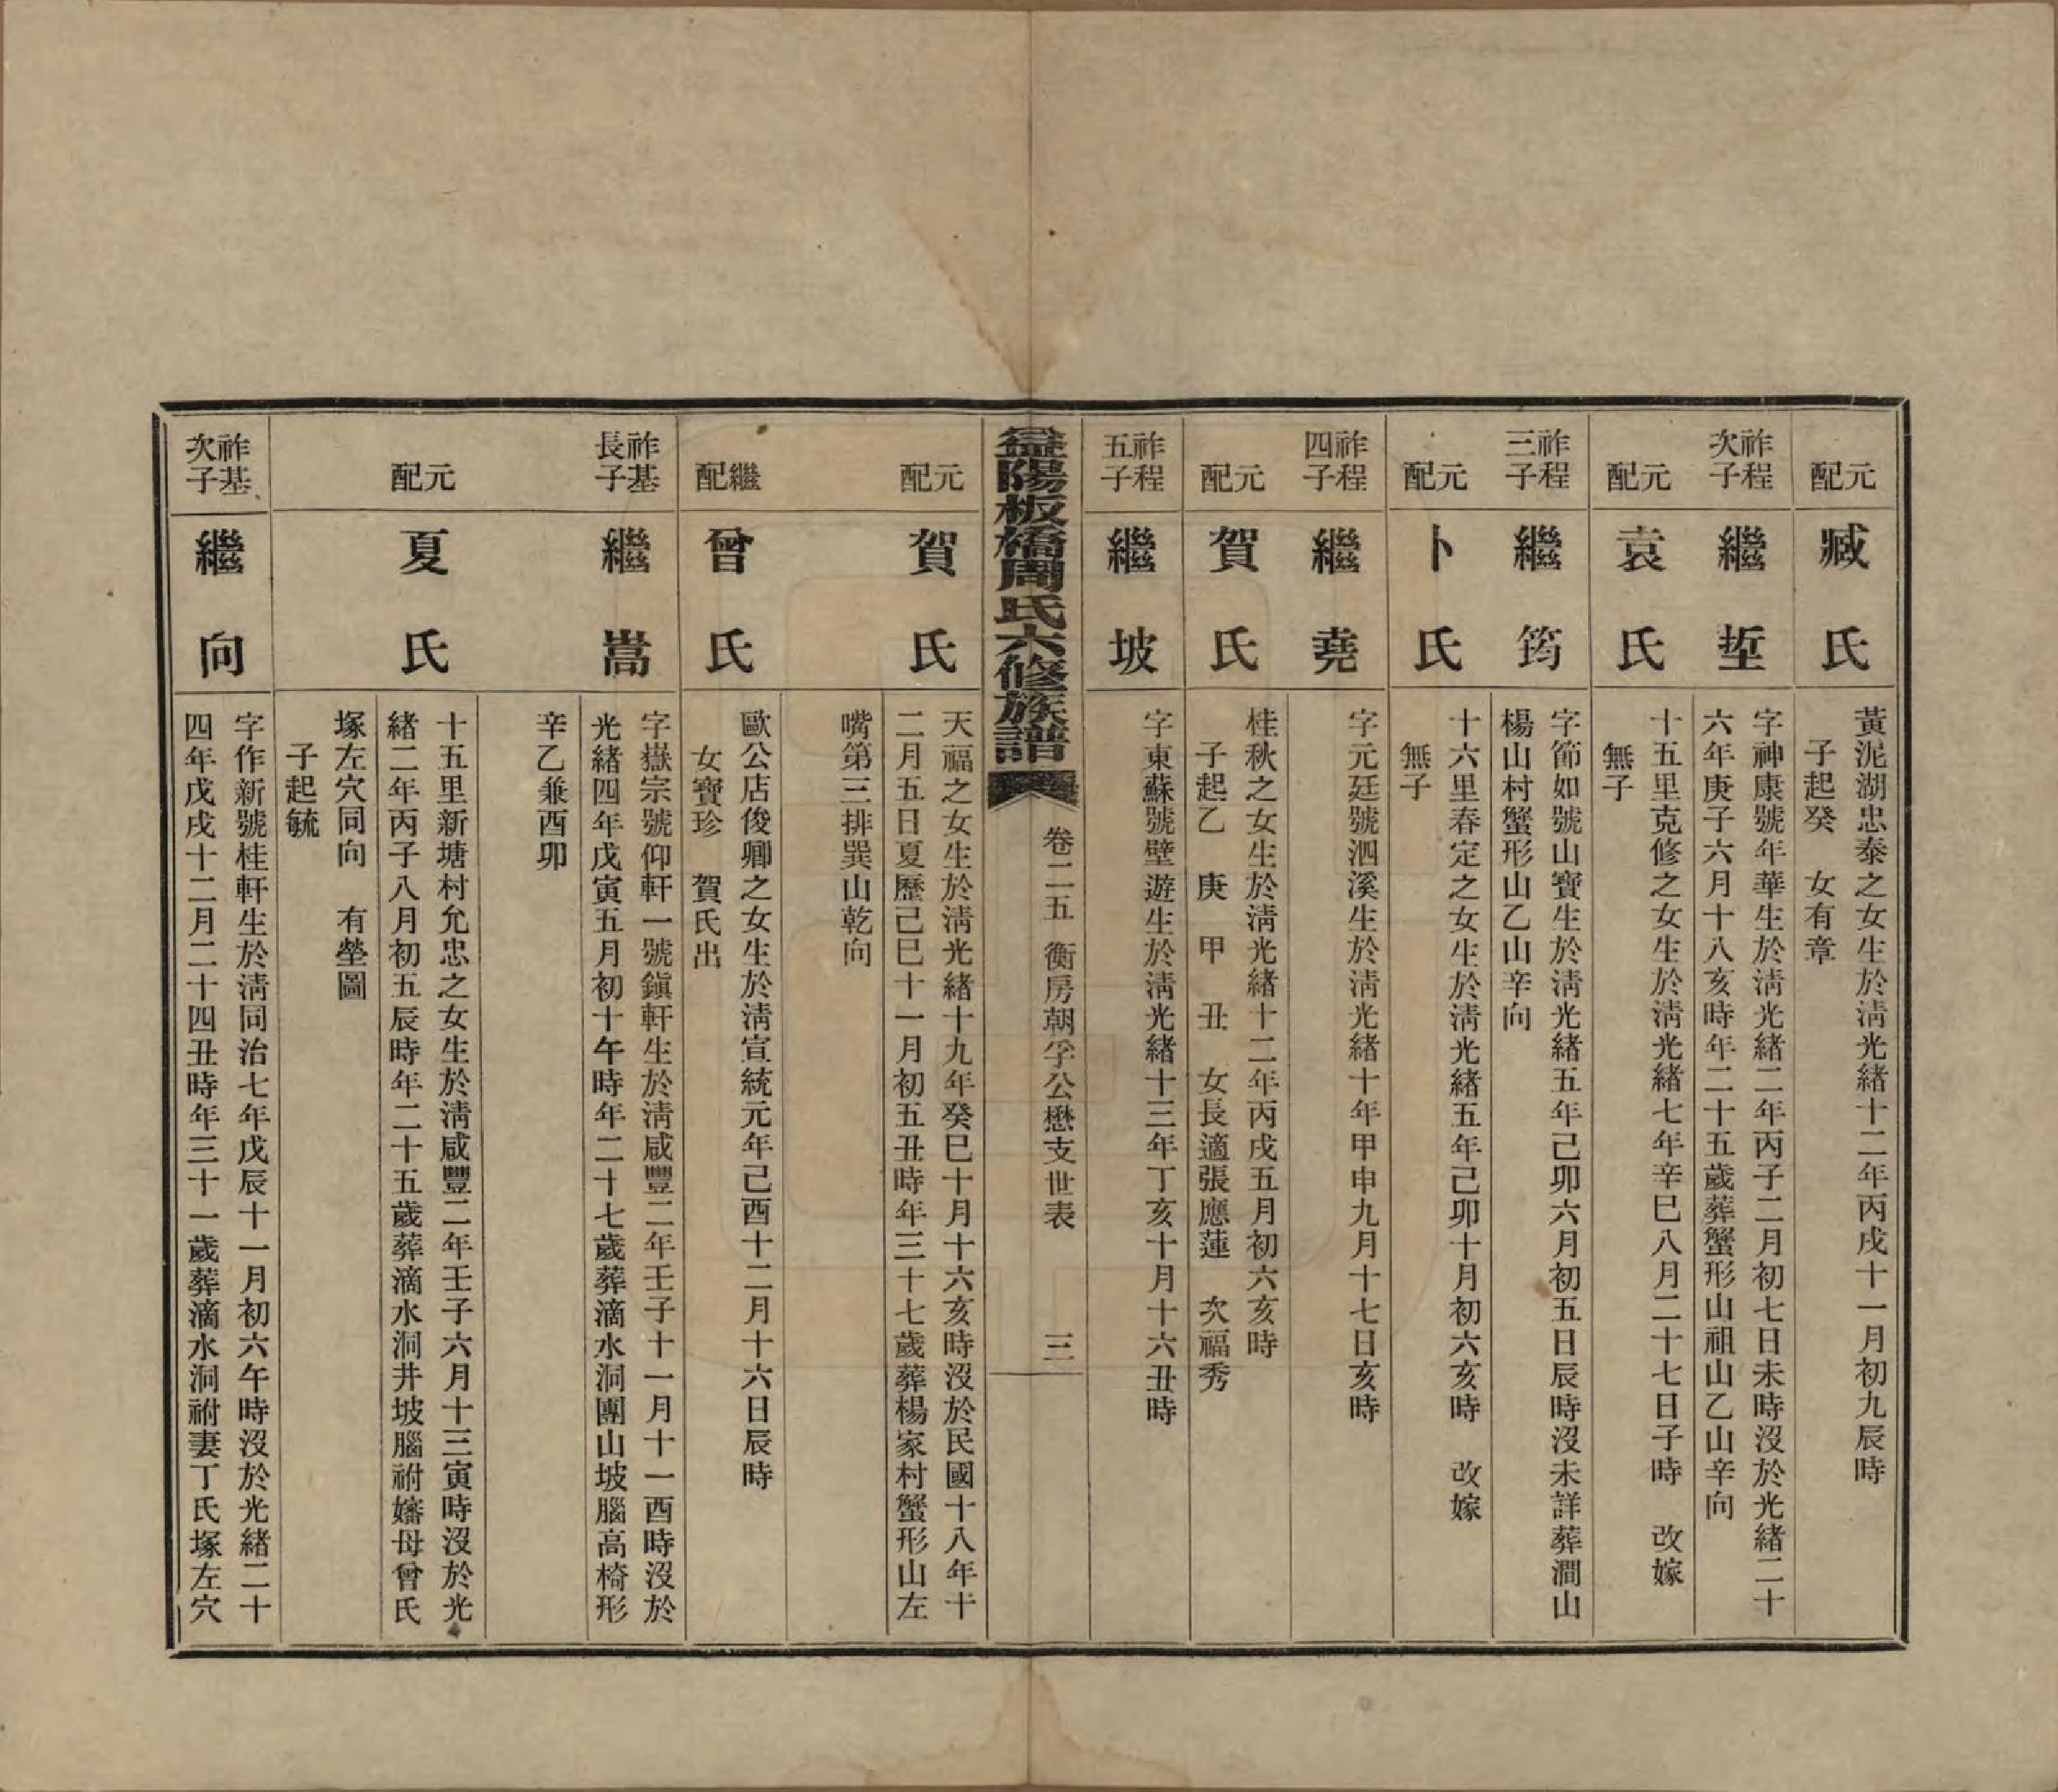 元配
臧氏
黃泥湖忠泰之女生於淸光緒十二年丙戌十一月初九辰時
子起癸　女有章
祚程
次子
繼堊
字神康號年華生於淸光緒二年丙子二月初七日未時沒於光緒二十
六年庚子六月十八亥時年二十五歲葬蟹形山祖山乙山辛向
元配
袁氏
十五里克修之女生於淸光緒七年辛巳八月二十七日子時　改嫁
無子
祚程
三子
繼筠
字節如號山寶生於淸光緒五年己卯六月初五日辰時沒未詳葬澗山
楊山村蟹形山乙山辛向
元配
卜氏
十六里春定之女生於淸光緒五年己卯十月初六亥時　改嫁
無子
祚程
四子
繼堯
字元廷號泗溪生於淸光緒十年甲申九月十七日亥時
元配
賀氏
桂秋之女生於淸光緒十二年丙戌五月初六亥時
子起乙　庚　甲　丑　女長適張應蓮　次福秀
祚程
五子
繼坡
字東蘇號壁遊生於淸光緒十三年丁亥十月十六丑時
益陽板橋周氏六修族譜
卷二五　衡房朝孚公懋支世表　三
元配
賀氏
天福之女生於淸光緒十九年癸巳十月十六亥時沒於民國十八年十
二月五日夏歷己巳十一月初五丑時年三十七歲葬楊家村蟹形山左
嘴第三排巽山乾向
繼配
曾氏
歐公店俊卿之女生於淸宣統元年己酉十二月十六日辰時
女寶珍　賀氏出
祚基
長子
繼嵩
字嶽宗號仰軒一號鎭軒生於淸咸豐二年壬子十一月十一酉時沒於
光緒四年戊寅五月初十午時年二十七歲葬滴水洞團山坡腦高椅形
辛乙兼酉卯
元配
夏氏
十五里新塘村允忠之女生於淸咸豐二年壬子六月十三寅時沒於光
緒二年丙子八月初五辰時年二十五歲葬滴水洞井坡腦祔嬸母曾氏
塚左穴同向　有塋圖
子起毓
祚基
次子
繼向
字作新號桂軒生於淸同治七年戊辰十一月初六午時沒於光緒二十
四年戊戌十二月二十四丑時年三十一歲葬滴水洞祔妻丁氏塚左穴